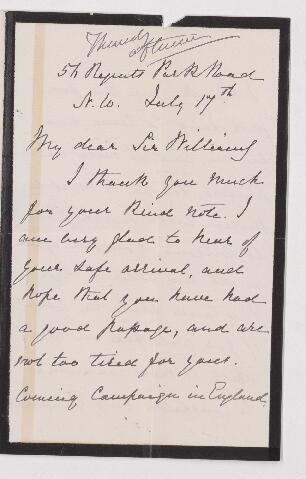 Thursday
afternoon
54 Regents Park Road
N.W. July 17th
My dear Sir William
I thank you much
for your kind note. I
am very glad to hear of
your safe arrival, and
hope that you have had
a good passage, and are
not too tired for your
coming campaign in England.